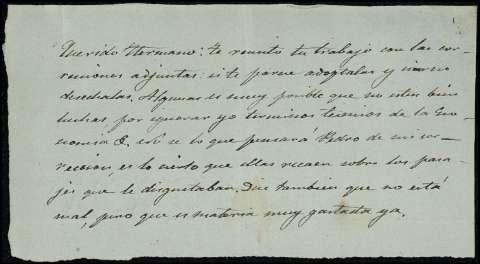 Querido Hermano: te remito tu trabajo con las cor-
recciones adjuntas: si te parece adoptalas y si no
desechalas. Algunas es muy posible que no esten bien
hechas, por ignorar yo terminos tecnicos de la
nomia &, no se lo que pensará Pedro de mi cor-
reccion, es lo cierto que ellas recaen sobre los pasa-
jes que le disgustaban. Dice tambien que no está
mal, pero que es materia muy gastada ya.